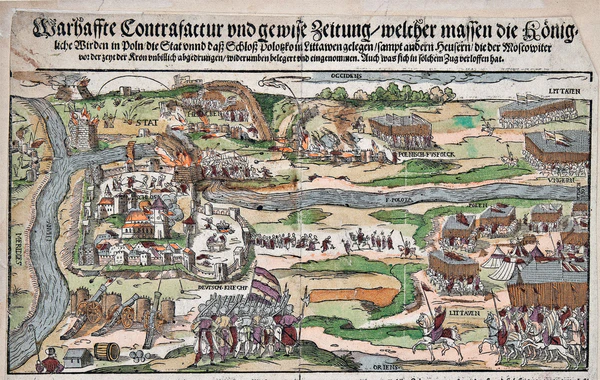 Warhaffte Contrafactur vnd gewise Zeitung/welcher massen die König-
liche Wirden in Poln/die Stat vnnd daß Schloß Polotzko in Littawen gelegen/sampt andern Heusern/die der Moscowiter
vor der zeyt der Kron vnbillich abgedrungen/widerumben belegert vnd eingenommen. Auch was sich in solchem Zug verloffen hat.
OCCIDENS
LITTAVEN
STAT
POLNISCH FVSFOLCK
F POLOTA
POLEN
MERIDIES
DEVTSCH KNECHT
LITTAVEN
ORIENS